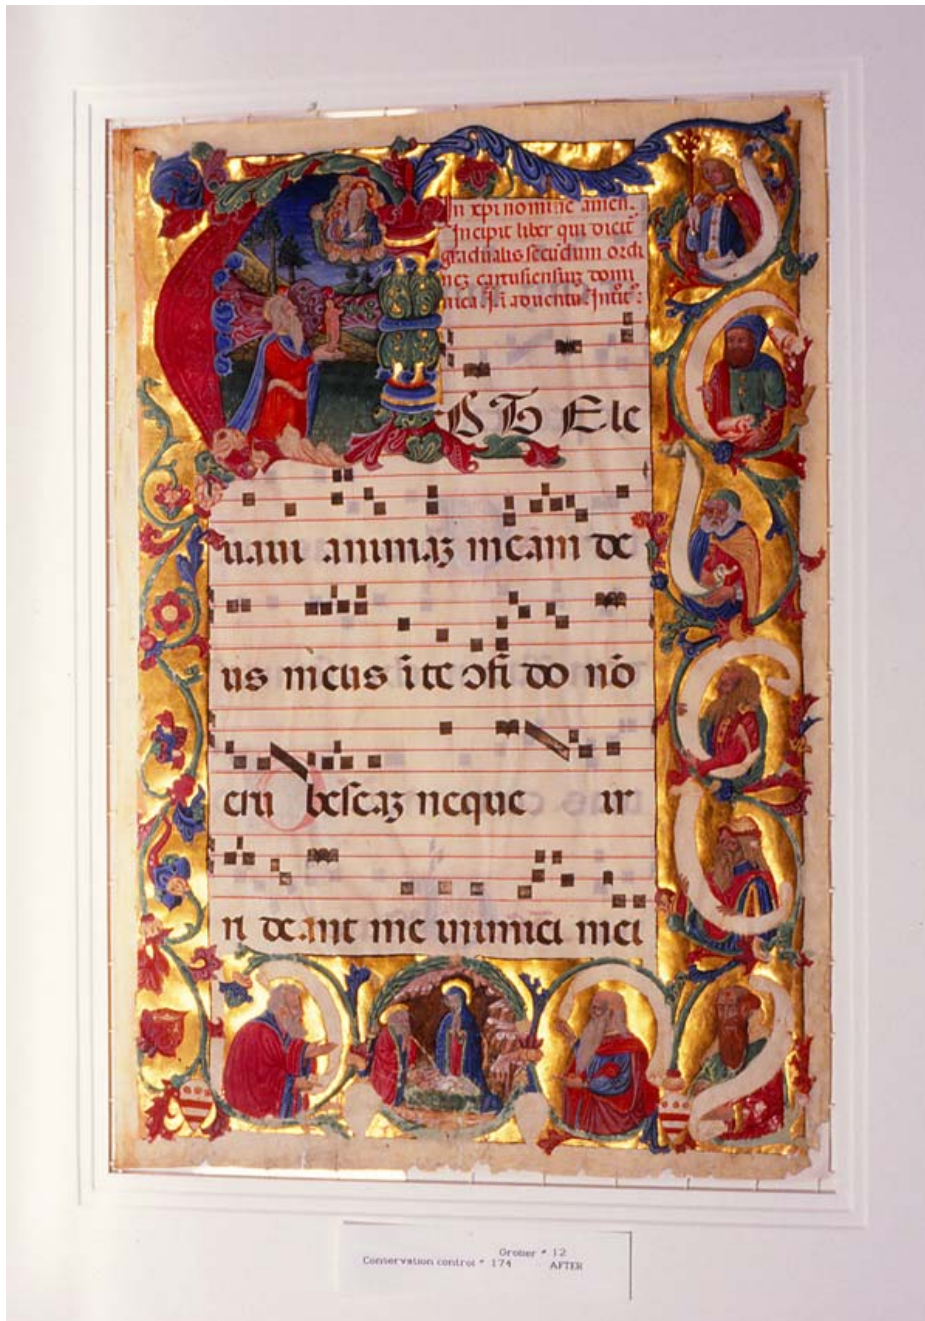 In xpi nomine amen.
Incipit liber qui dicit
gradualis secūdum ordi
neȝ cartusiensiuȝ domi
nica .I. ī aduentu. Introit :
D TE Ele
uaui animaȝ meam de
us meus ī te ↄfi do nō
eru bescaȝ neque ir
ri de ant me inimici mei
Grolier * 12
Conservation control * 174 AFTER